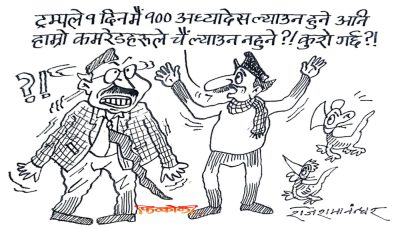 ट्रम्पले १ दिनमैं १०० अध्यादेस ल्याउन हुने अनि
हाम्रो कमरेडहरूले चैं ल्याउन नहुने ?! कुरो गर्छ ?!
?!
राजेशमानन्धर